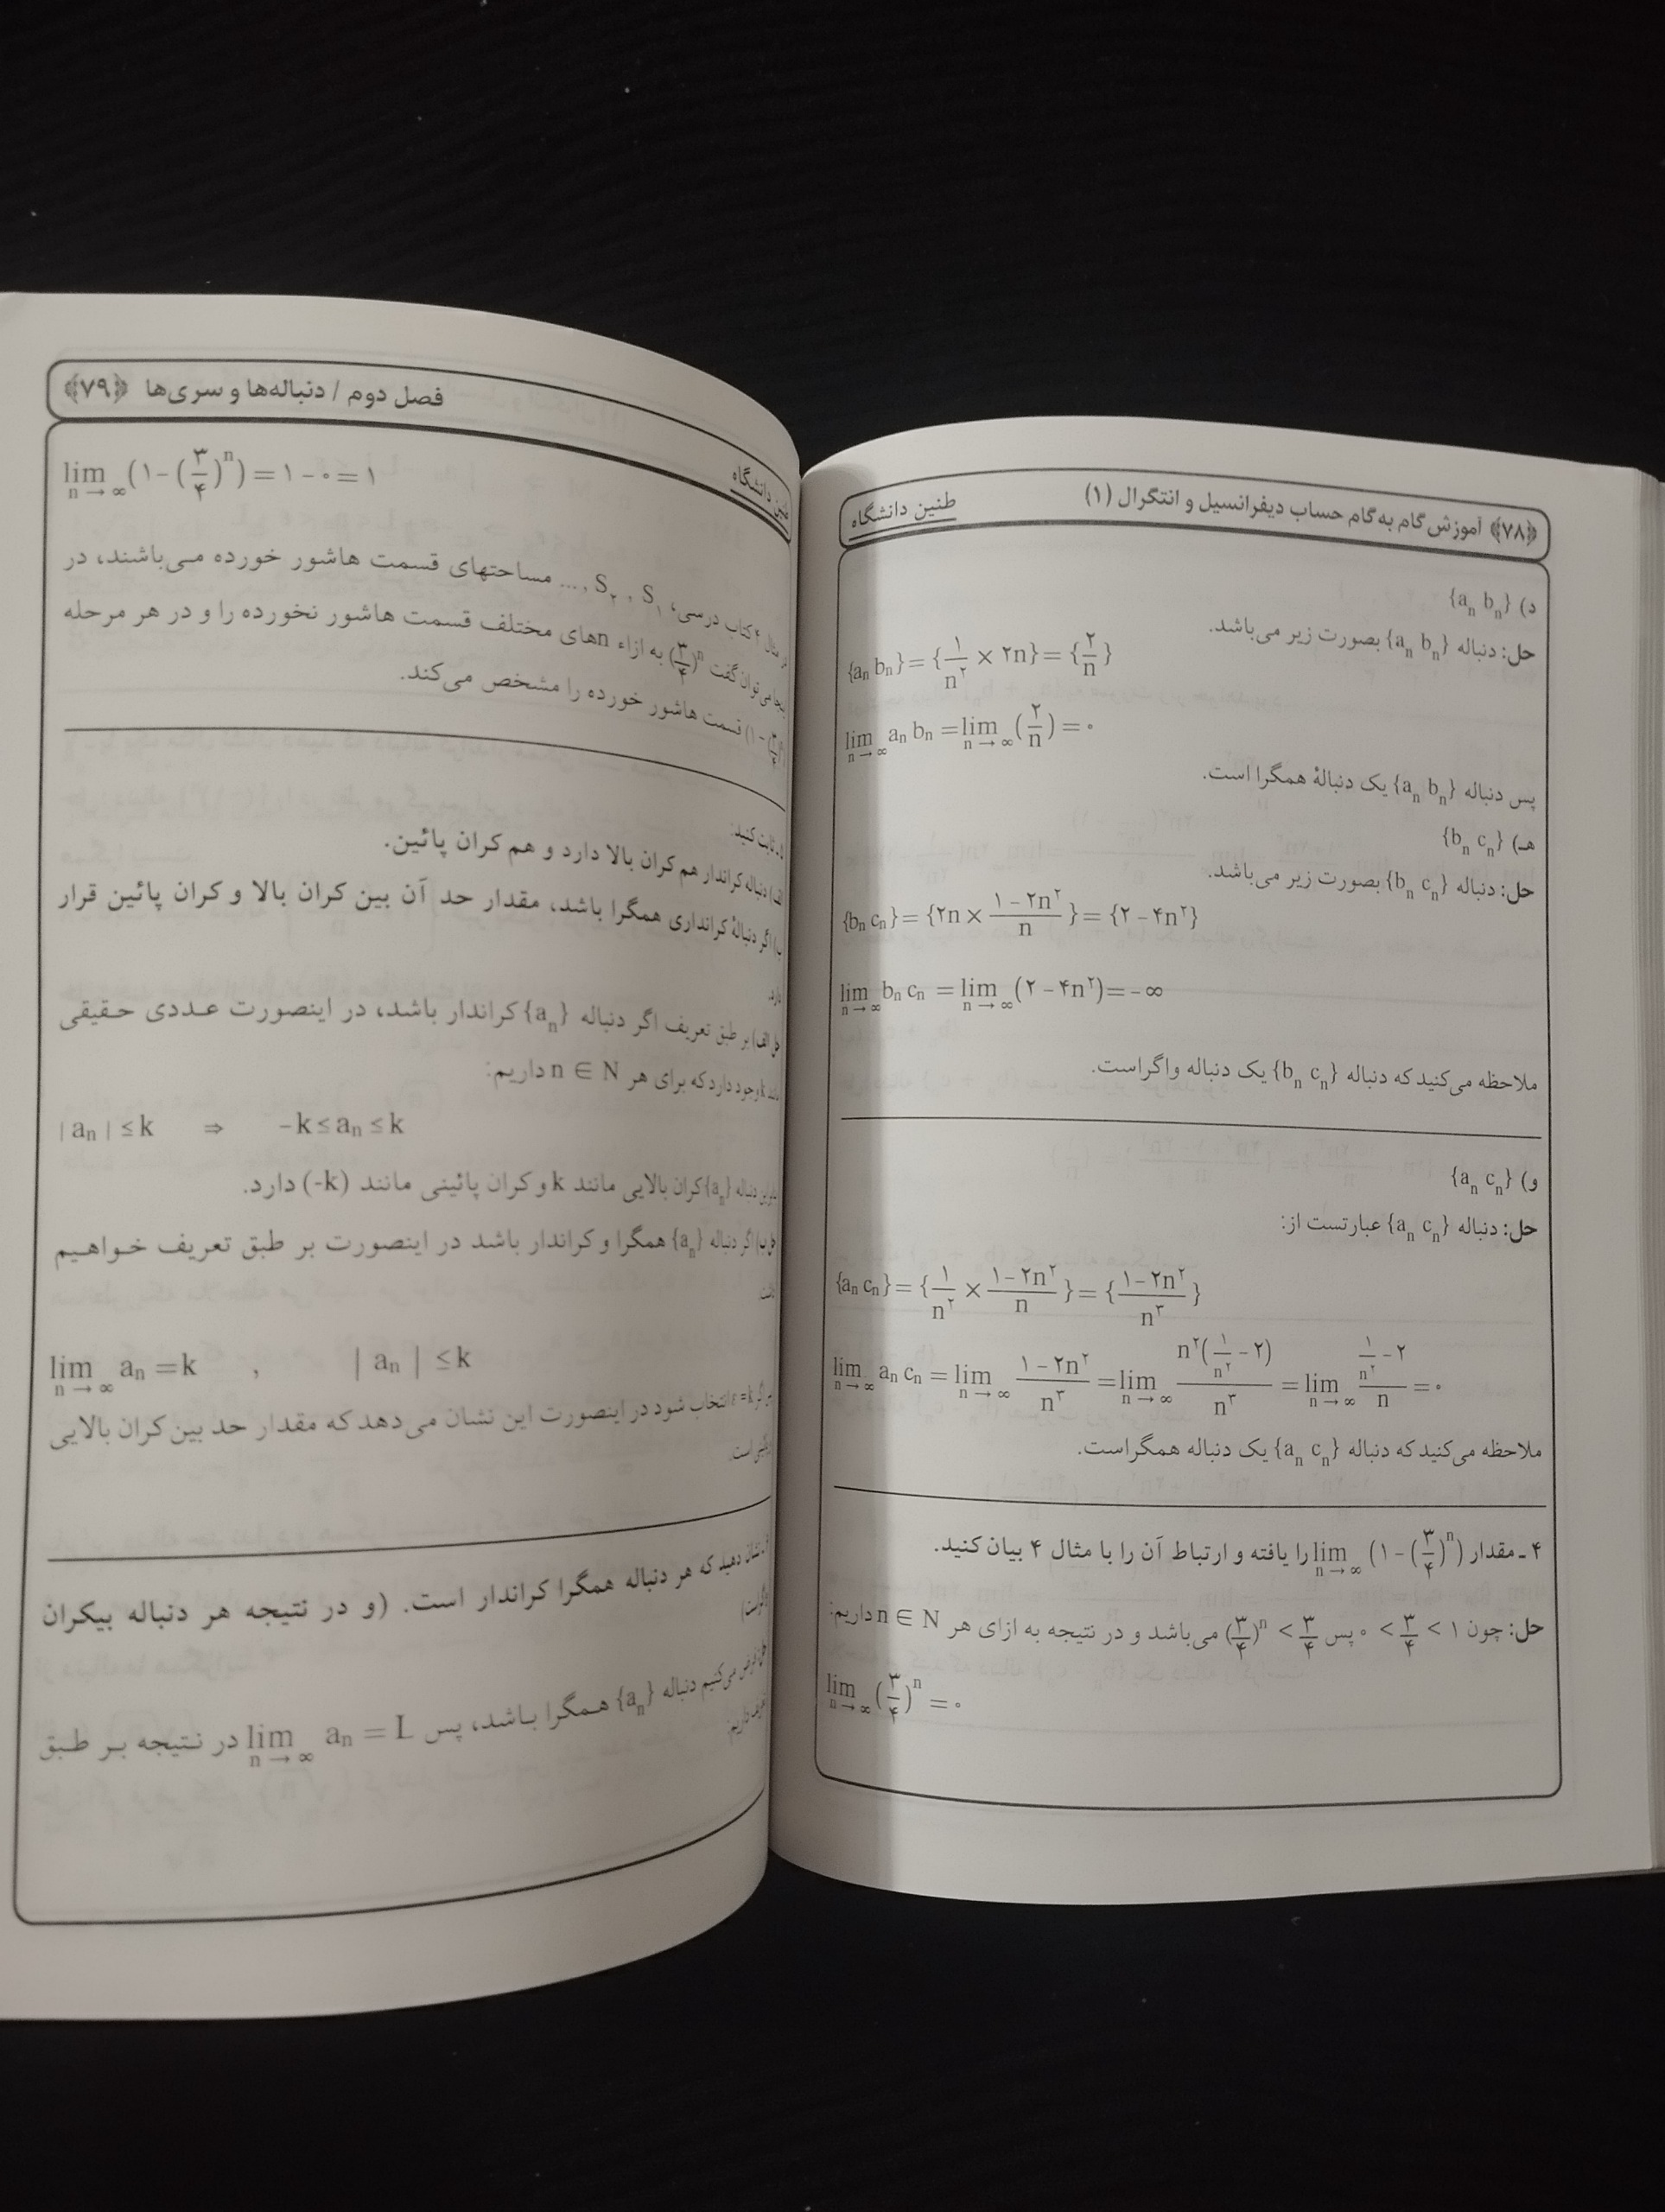 ﴿۷۸﴾ آموزش گام به گام حساب دیفرانسیل و انتگرال (۱) طنین دانشگاه
د) {aₙ bₙ}
حل: دنباله {aₙ bₙ} بصورت زیر می‌باشد.
{aₙ bₙ} = {۱/n² × ۲n} = {۲/n}
lim n→∞ aₙ bₙ = lim n→∞ (۲/n) = ۰
پس دنباله {aₙ bₙ} یک دنبالۀ همگرا است.
هـ) {bₙ cₙ}
حل: دنباله {bₙ cₙ} بصورت زیر می‌باشد.
{bₙ cₙ} = {۲n × (۱ − ۲n²)/n} = {۲ − ۴n²}
lim n→∞ bₙ cₙ = lim n→∞ (۲ − ۴n²) = −∞
ملاحظه می‌کنید که دنباله {bₙ cₙ} یک دنباله واگراست.
و) {aₙ cₙ}
حل: دنباله {aₙ cₙ} عبارتست از:
{aₙ cₙ} = {۱/n² × (۱ − ۲n²)/n} = {(۱ − ۲n²)/n³}
lim n→∞ aₙ cₙ = lim n→∞ (۱ − ۲n²)/n³ = lim n→∞ n²(۱/n² − ۲)/n³ = lim n→∞ (۱/n² − ۲)/n = ۰
ملاحظه می‌کنید که دنباله {aₙ cₙ} یک دنباله همگراست.
۴ ـ مقدار lim n→∞ (۱ − (۳/۴)ⁿ) را یافته و ارتباط آن را با مثال ۴ بیان کنید.
حل: چون ۱ > ۳/۴ > ۰ پس ۳/۴ > (۳/۴)ⁿ می‌باشد و در نتیجه به ازای هر n ∈ N داریم:
lim n→∞ (۳/۴)ⁿ = ۰
فصل دوم / دنباله‌ها و سری‌ها ﴿۷۹﴾
طنین دانشگاه
lim n→∞ (۱ − (۳/۴)ⁿ) = ۱ − ۰ = ۱
مثال ۴ کتاب درسی، S₁ , S₂ , ... مساحتهای قسمت هاشور خورده می‌باشند، در
می‌توان گفت (۳/۴)ⁿ به ازاء nهای مختلف قسمت هاشور نخورده را و در هر مرحله
(۱ − (۳/۴)ⁿ) قسمت هاشور خورده را مشخص می‌کند.
۵ ـ ثابت کنید:
الف) دنباله کراندار هم کران بالا دارد و هم کران پائین.
ب) اگر دنبالۀ کرانداری همگرا باشد، مقدار حد آن بین کران بالا و کران پائین قرار
دارد.
حل الف) بر طبق تعریف اگر دنباله {aₙ} کراندار باشد، در اینصورت عددی حقیقی
مانند k وجود دارد که برای هر n ∈ N داریم:
| aₙ | ≤ k ⇒ −k ≤ aₙ ≤ k
بنابراین دنباله {aₙ} کران بالایی مانند k و کران پائینی مانند (-k) دارد.
حل ب) اگر دنباله {aₙ} همگرا و کراندار باشد در اینصورت بر طبق تعریف خواهیم
داشت:
lim n→∞ aₙ = k , | aₙ | ≤ k
انتخاب شود در اینصورت این نشان می‌دهد که مقدار حد بین کران بالایی
است.
نشان دهید که هر دنباله همگرا کراندار است. (و در نتیجه هر دنباله بیکران
واگراست)
فرض می‌کنیم دنباله {aₙ} همگرا باشد، پس lim n→∞ aₙ = L در نتیجه بر طبق
تعریف داریم: